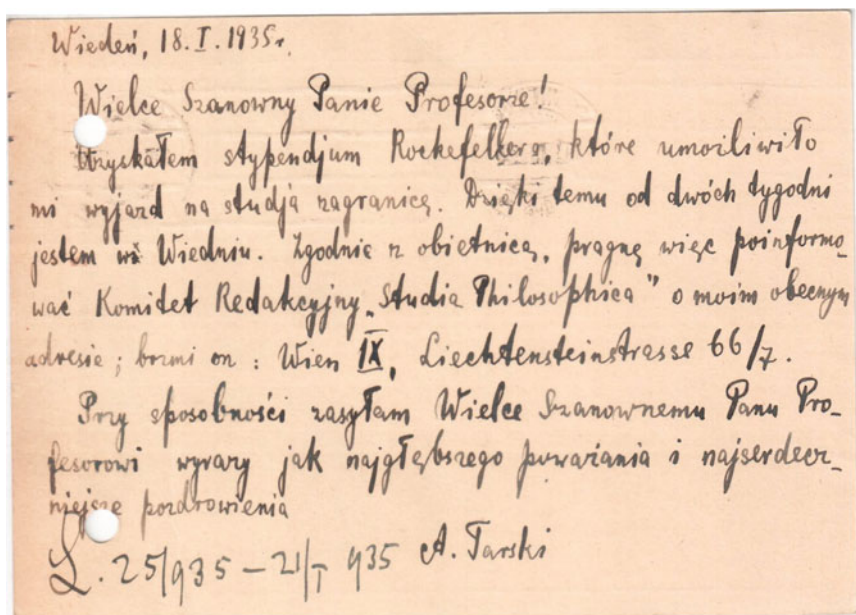 Wiedeń, 18. I. 1935r.
Wielce Szanowny Panie Profesorze!
Uzyskałem stypendjum Rockefellera, które umożliwiło
mi wyjazd na studja zagranicę. Dzięki temu od dwóch tygodni
jestem w Wiedniu. Zgodnie z obietnicą, pragnę więc poinformo_
wać Komitet Redakcyjny „Studia Philosophica" o moim obecnym
adresie; brzmi on: Wien IX, Liechtensteinstrasse 66/7.
Przy sposobności zasyłam Wielce Szanownemu Panu Pro_
fesorowi wyrazy jak najgłębszego poważania i najserdecz_
niejsze pozdrowienia
A. Tarski
L. 25/935 – 21/I 935